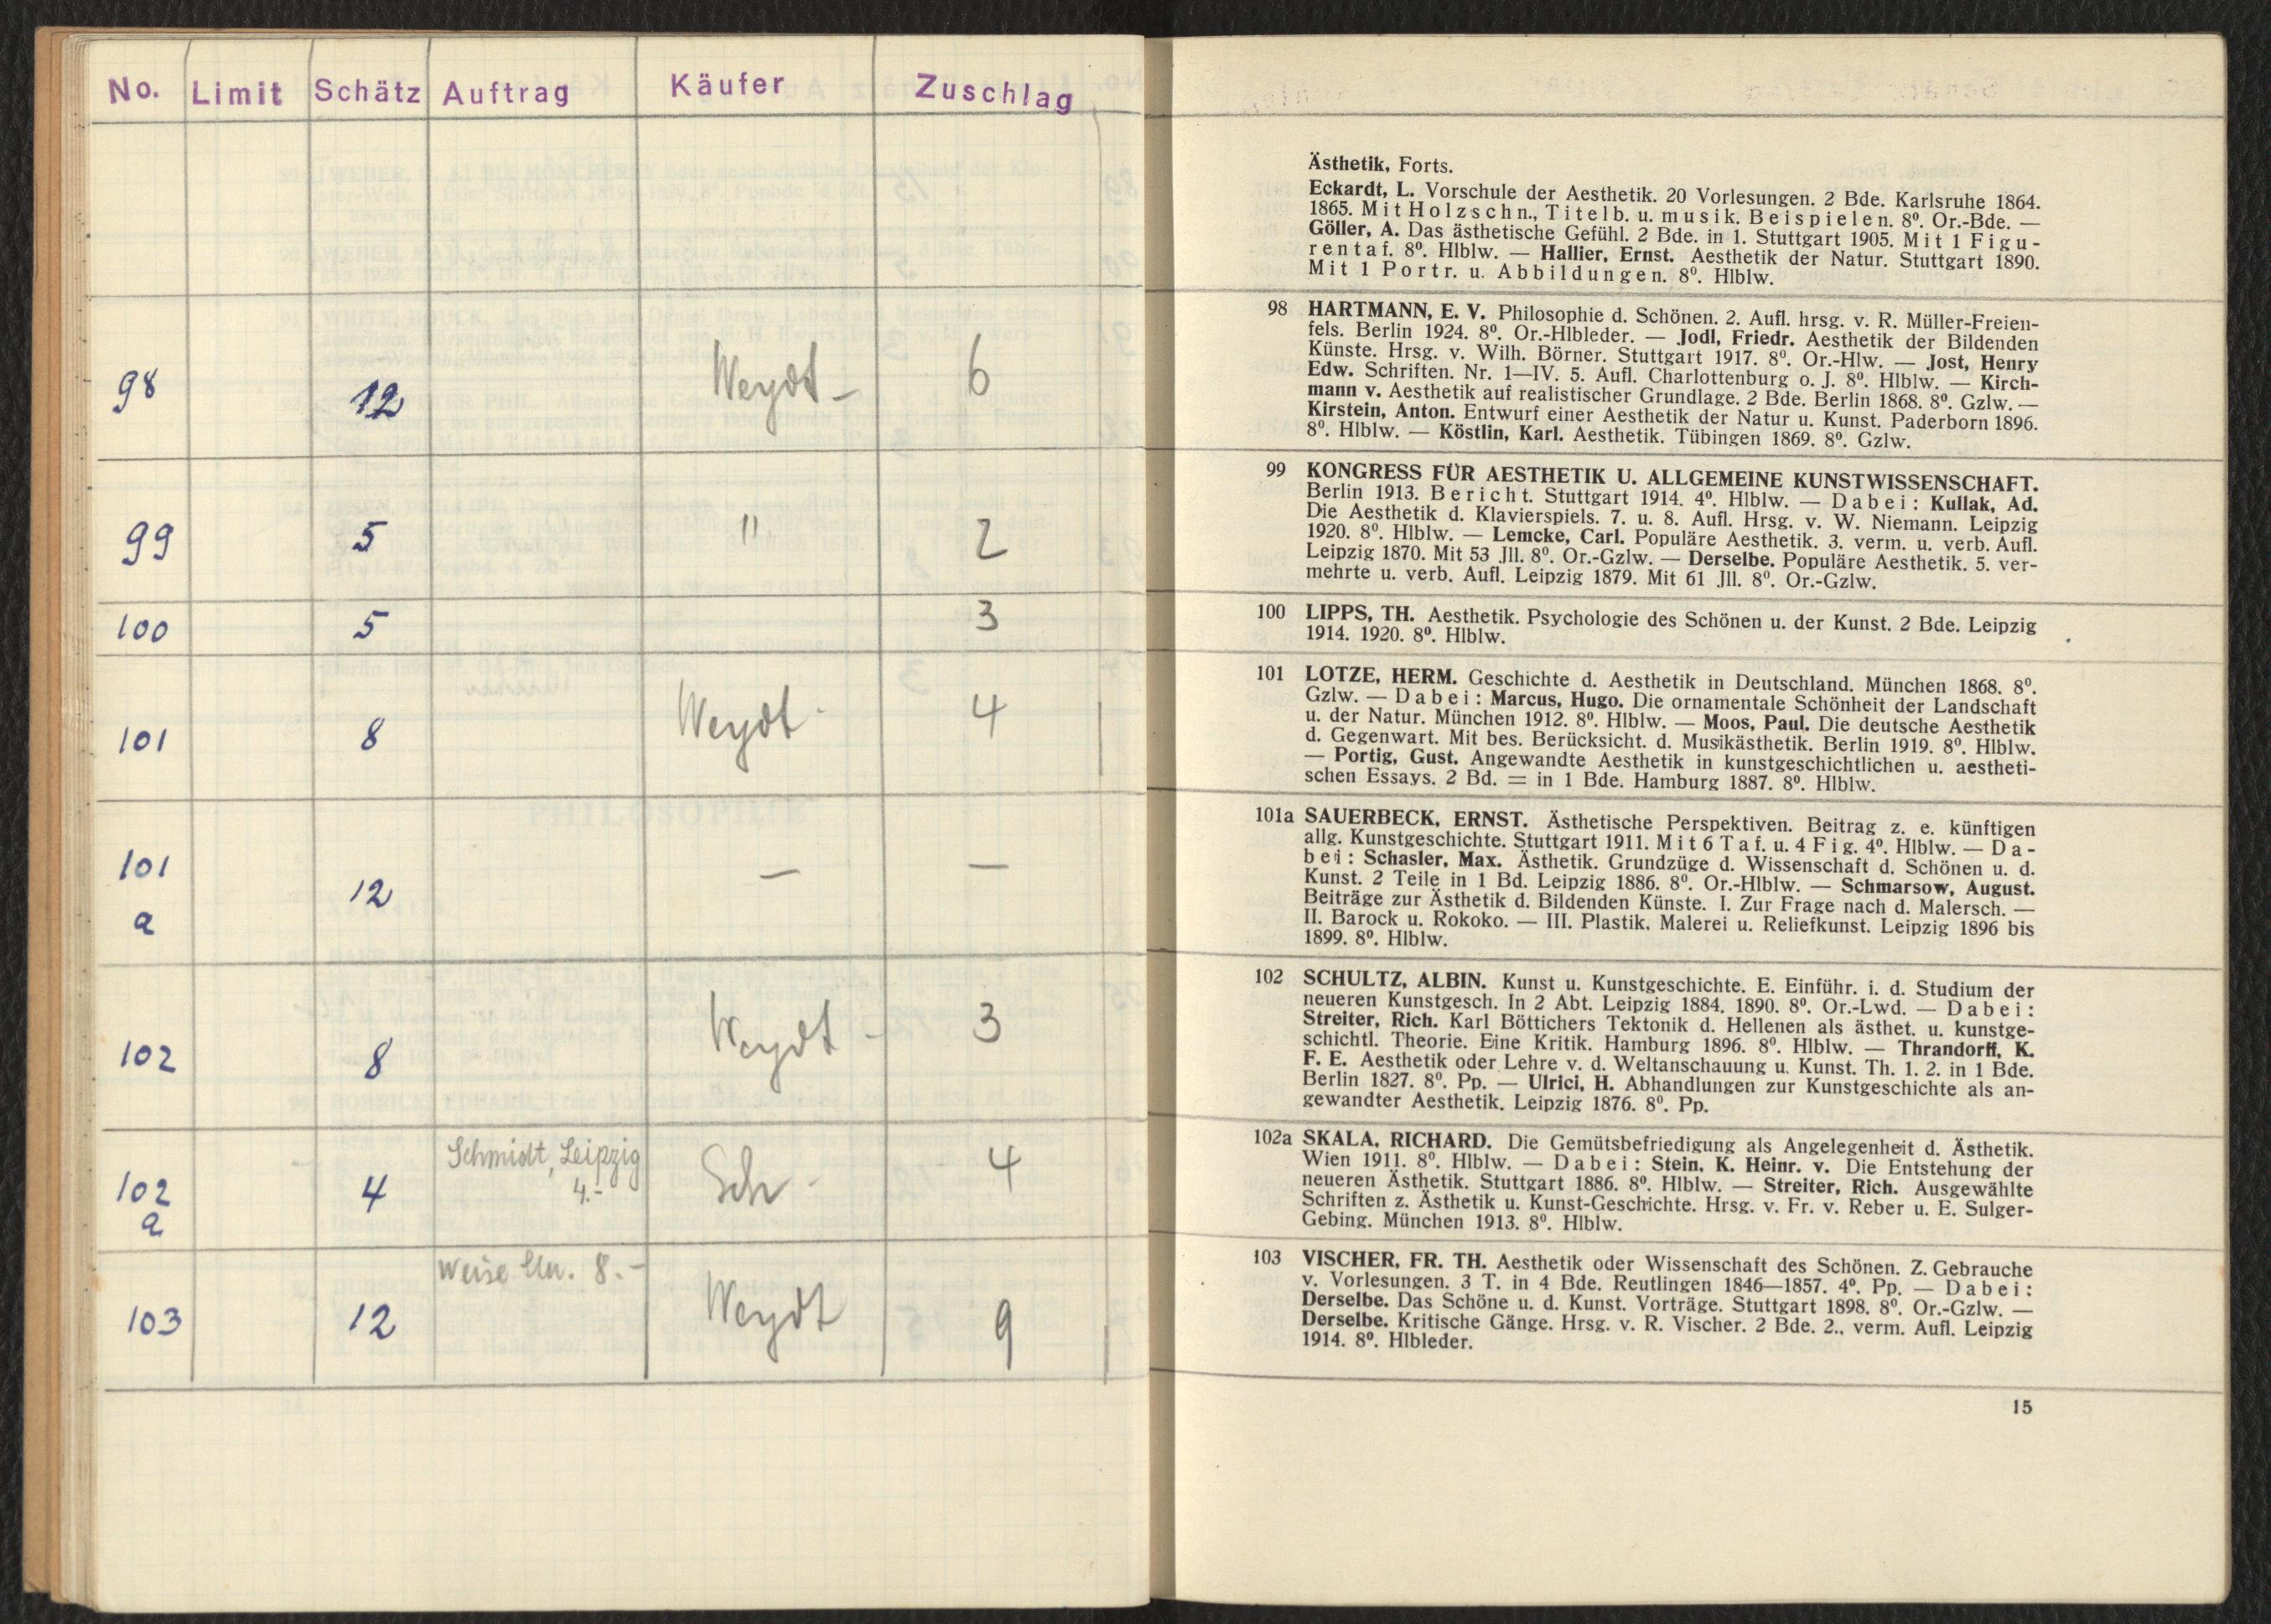 No. Limit Schätz Auftrag Käufer Zuschlag
98 12 Weydt - 6
99 5 " 2
100 5 3
101 8 Weydt - 4
101
a 12 — —
102 8 Weydt - 3
Schmidt, Leipzig
4.-
102
a 4 Sch - 4
Weise 8.-
103 12 Weydt 9
Ästhetik, Forts.
Eckardt, L. Vorschule der Aesthetik. 20 Vorlesungen. 2 Bde. Karlsruhe 1864.
1865. Mit Holzschn., Titelb. u. musik. Beispielen. 8⁰. Or.-Bde. —
Göller, A. Das ästhetische Gefühl. 2 Bde. in 1. Stuttgart 1905. Mit 1 Figu-
rentaf. 8⁰. Hlblw. — Hallier, Ernst. Aesthetik der Natur. Stuttgart 1890.
Mit 1 Portr. u. Abbildungen. 8⁰. Hlblw.
98 HARTMANN, E. V. Philosophie d. Schönen. 2. Aufl. hrsg. v. R. Müller-Freien-
fels. Berlin 1924. 8⁰. Or.-Hlbleder. — Jodl, Friedr. Aesthetik der Bildenden
Künste. Hrsg. v. Wilh. Börner. Stuttgart 1917. 8⁰. Or.-Hlw. — Jost, Henry
Edw. Schriften. Nr. 1—IV. 5. Aufl. Charlottenburg o. J. 8⁰. Hlblw. — Kirch-
mann v. Aesthetik auf realistischer Grundlage. 2 Bde. Berlin 1868. 8⁰. Gzlw. —
Kirstein, Anton. Entwurf einer Aesthetik der Natur u. Kunst. Paderborn 1896.
8⁰. Hlblw. — Köstlin, Karl. Aesthetik. Tübingen 1869. 8⁰. Gzlw.
99 KONGRESS FÜR AESTHETIK U. ALLGEMEINE KUNSTWISSENSCHAFT.
Berlin 1913. Bericht. Stuttgart 1914. 4⁰. Hlblw. — Dabei: Kullak, Ad.
Die Aesthetik d. Klavierspiels. 7. u. 8. Aufl. Hrsg. v. W. Niemann. Leipzig
1920. 8⁰. Hlblw. — Lemcke, Carl. Populäre Aesthetik. 3. verm. u. verb. Aufl.
Leipzig 1870. Mit 53 Jll. 8⁰. Or.-Gzlw. — Derselbe. Populäre Aesthetik. 5. ver-
mehrte u. verb. Aufl. Leipzig 1879. Mit 61 Jll. 8⁰. Or.-Gzlw.
100 LIPPS, TH. Aesthetik. Psychologie des Schönen u. der Kunst. 2 Bde. Leipzig
1914. 1920. 8⁰. Hlblw.
101 LOTZE, HERM. Geschichte d. Aesthetik in Deutschland. München 1868. 8⁰.
Gzlw. — Dabei: Marcus, Hugo. Die ornamentale Schönheit der Landschaft
u. der Natur. München 1912. 8⁰. Hlblw. — Moos, Paul. Die deutsche Aesthetik
d. Gegenwart. Mit bes. Berücksicht. d. Musikästhetik. Berlin 1919. 8⁰. Hlblw.
— Portig, Gust. Angewandte Aesthetik in kunstgeschichtlichen u. aestheti-
schen Essays. 2 Bd. = in 1 Bde. Hamburg 1887. 8⁰. Hlblw.
101a SAUERBECK, ERNST. Ästhetische Perspektiven. Beitrag z. e. künftigen
allg. Kunstgeschichte. Stuttgart 1911. Mit 6 Taf. u. 4 Fig. 4⁰. Hlblw. — Da-
bei: Schasler, Max. Ästhetik. Grundzüge d. Wissenschaft d. Schönen u. d.
Kunst. 2 Teile in 1 Bd. Leipzig 1886. 8⁰. Or.-Hlblw. — Schmarsow, August.
Beiträge zur Ästhetik d. Bildenden Künste. I. Zur Frage nach d. Malersch. —
II. Barock u. Rokoko. — III. Plastik, Malerei u. Reliefkunst. Leipzig 1896 bis
1899. 8⁰. Hlblw.
102 SCHULTZ, ALBIN. Kunst u. Kunstgeschichte. E. Einführ. i. d. Studium der
neueren Kunstgesch. In 2 Abt. Leipzig 1884. 1890. 8⁰. Or.-Lwd. — Dabei:
Streiter, Rich. Karl Böttichers Tektonik d. Hellenen als ästhet. u. kunstge-
schichtl. Theorie. Eine Kritik. Hamburg 1896. 8⁰. Hlblw. — Thrandorff, K.
F. E. Aesthetik oder Lehre v. d. Weltanschauung u. Kunst. Th. 1. 2. in 1 Bde.
Berlin 1827. 8⁰. Pp. — Ulrici, H. Abhandlungen zur Kunstgeschichte als an-
gewandter Aesthetik. Leipzig 1876. 8⁰. Pp.
102a SKALA, RICHARD. Die Gemütsbefriedigung als Angelegenheit d. Ästhetik.
Wien 1911. 8⁰. Hlblw. — Dabei: Stein, K. Heinr. v. Die Entstehung der
neueren Ästhetik. Stuttgart 1886. 8⁰. Hlblw. — Streiter, Rich. Ausgewählte
Schriften z. Ästhetik u. Kunst-Geschichte. Hrsg. v. Fr. v. Reber u. E. Sulger-
Gebing. München 1913. 8⁰. Hlblw.
103 VISCHER, FR. TH. Aesthetik oder Wissenschaft des Schönen. Z. Gebrauche
v. Vorlesungen. 3 T. in 4 Bde. Reutlingen 1846—1857. 4⁰. Pp. — Dabei:
Derselbe. Das Schöne u. d. Kunst. Vorträge. Stuttgart 1898. 8⁰. Or.-Gzlw. —
Derselbe. Kritische Gänge. Hrsg. v. R. Vischer. 2 Bde. 2., verm. Aufl. Leipzig
1914. 8⁰. Hlbleder.
15